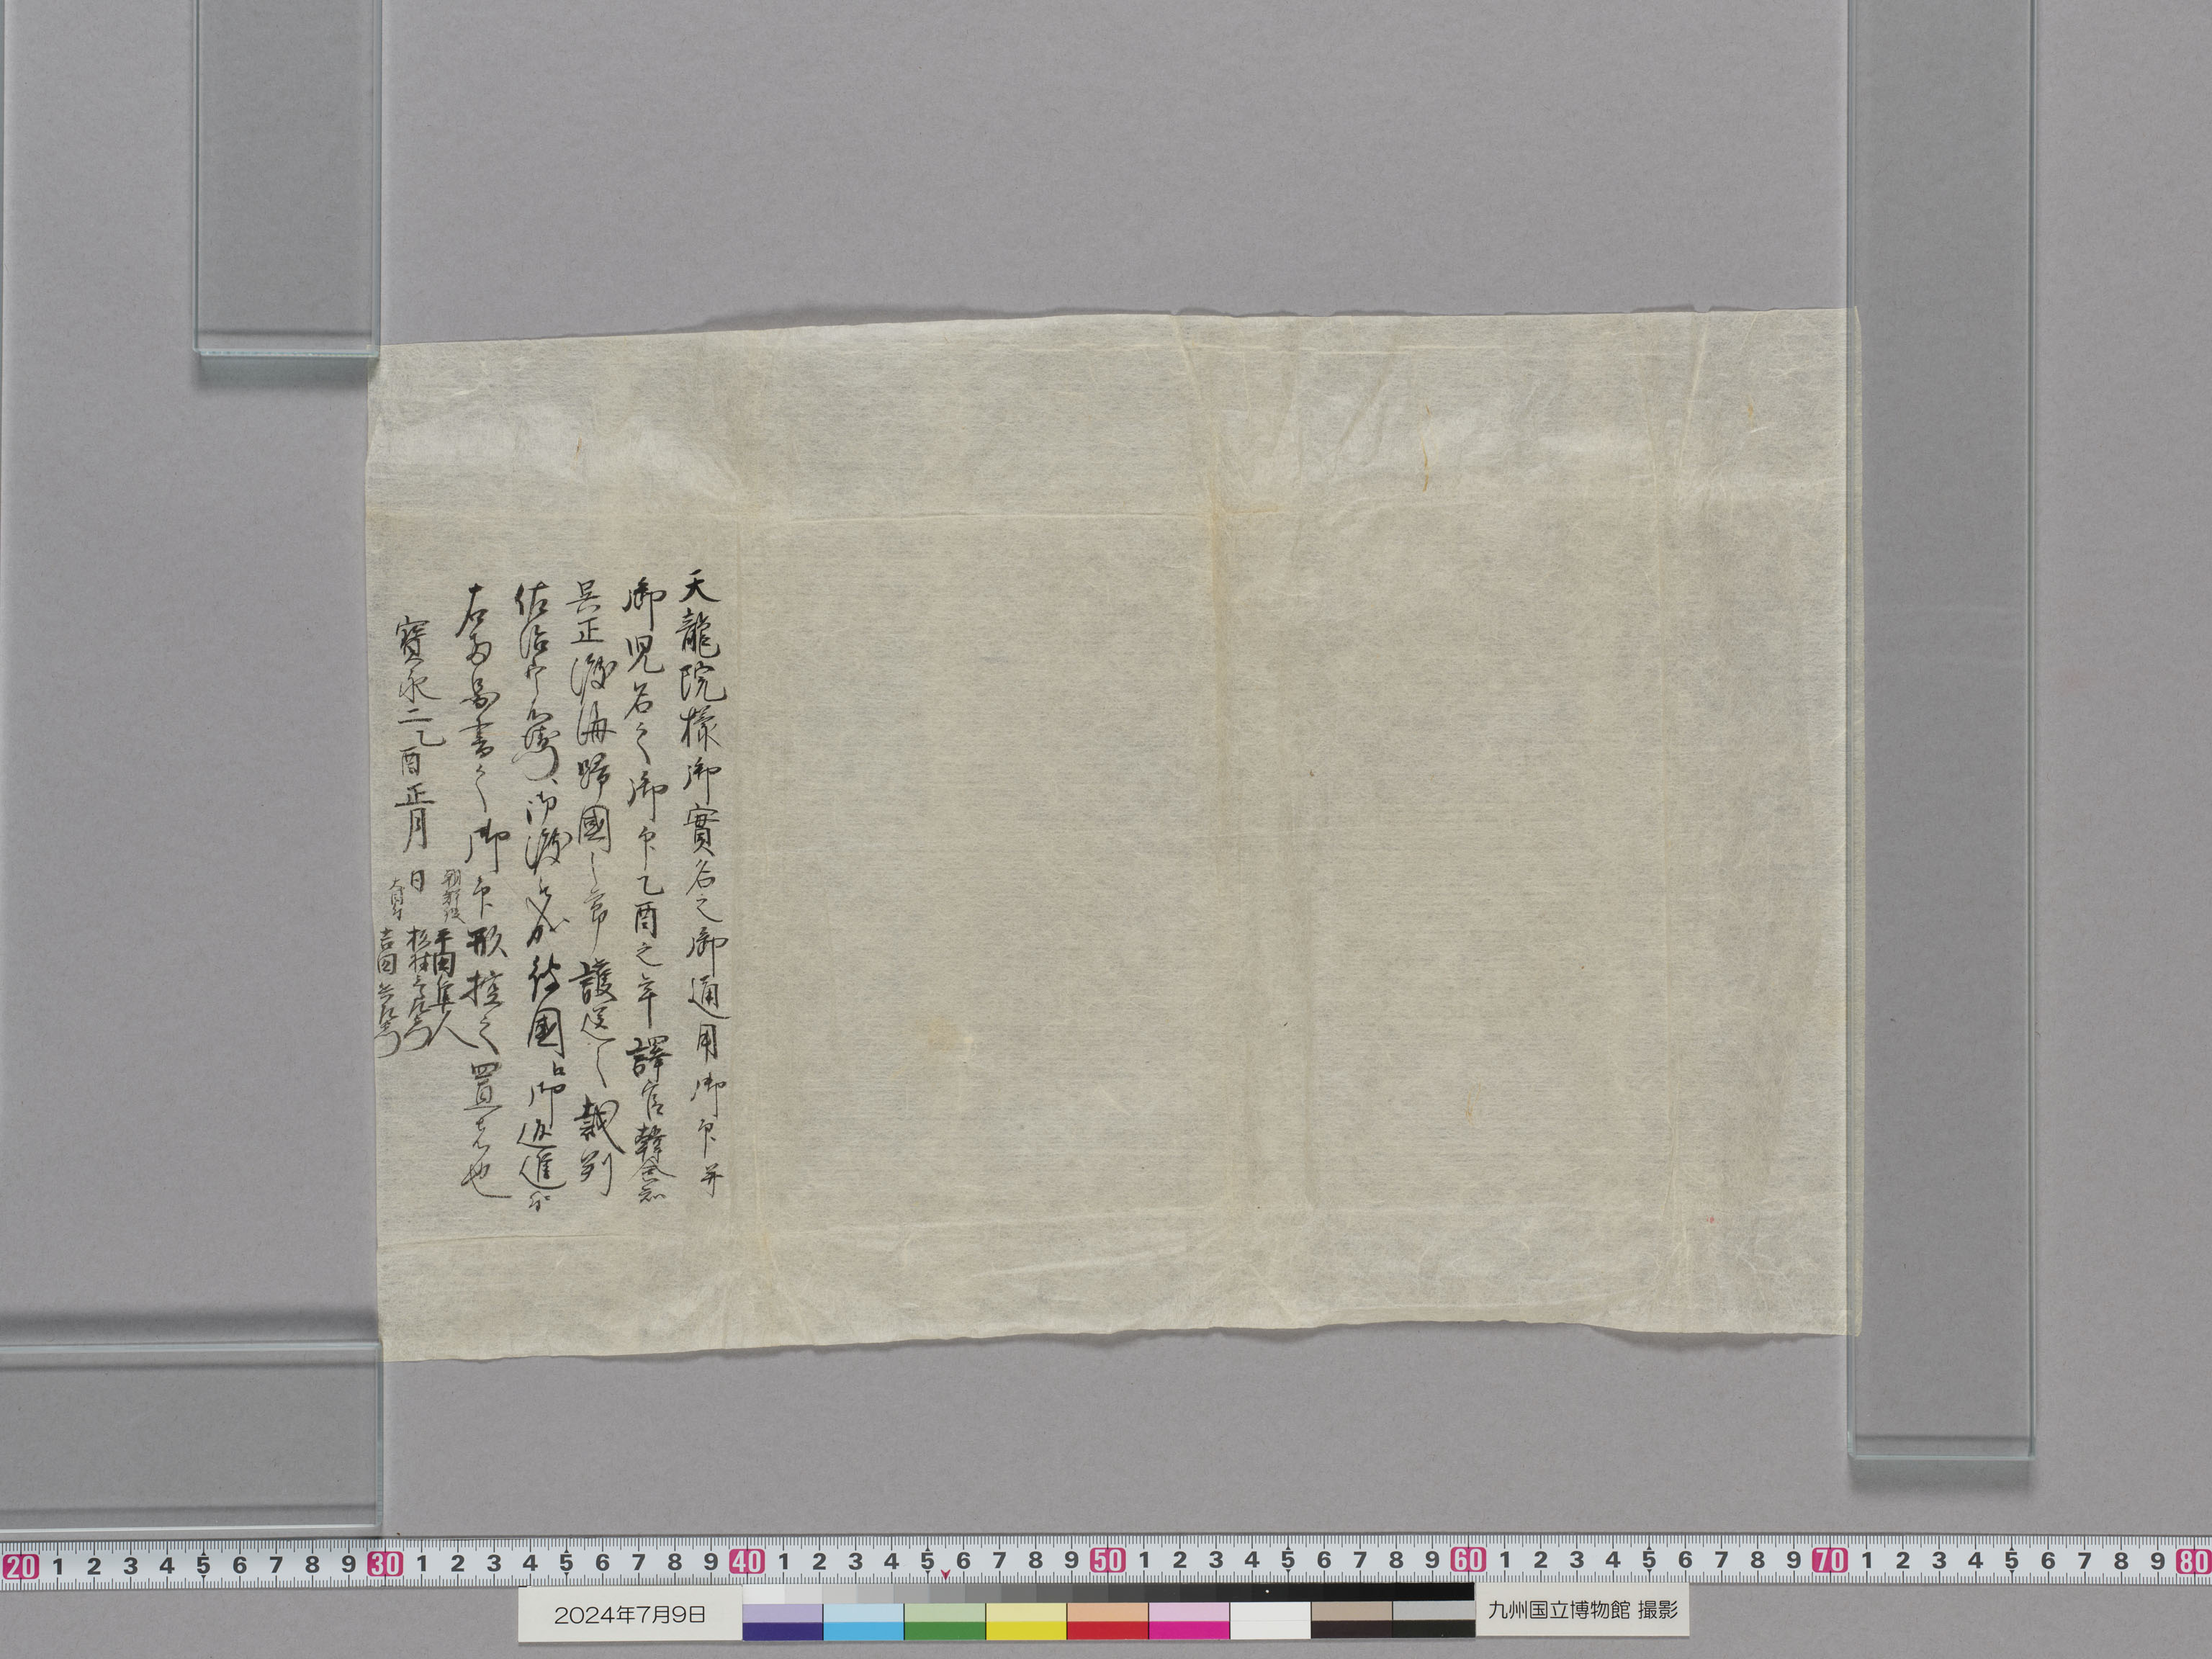 天龍院様御實名之御通用御印并
御児名之御印乙酉之年譯官韓僉知
呉正渡海歸國之節護送之裁判
佐治宇右衛門、御渡被成彼国占御返進
右両図書之御印形控之置者也
寶永二乙酉正月 日
朝鮮役 平田隼人
杉村三左衛門
大目付 吉田兵左衛門
20 1 2 3 4 5 6 7 8 9 30 1 2 3 4 5 6 7 8 9 40 1 2 3 4 5 6 7 8 9 50 1 2 3 4 5 6 7 8 9 60 1 2 3 4 5 6 7 8 9 70 1 2 3 4 5 6 7 8 9 80
2024年7月9日
九州国立博物館 撮影